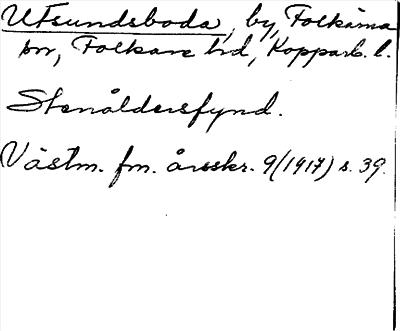 Utsundsboda, by, Folkärna
sn, Folkare hd, Kopparb. l.
Stenåldersfynd.
Västm. fm. årsskr. 9/(1917) s. 39.